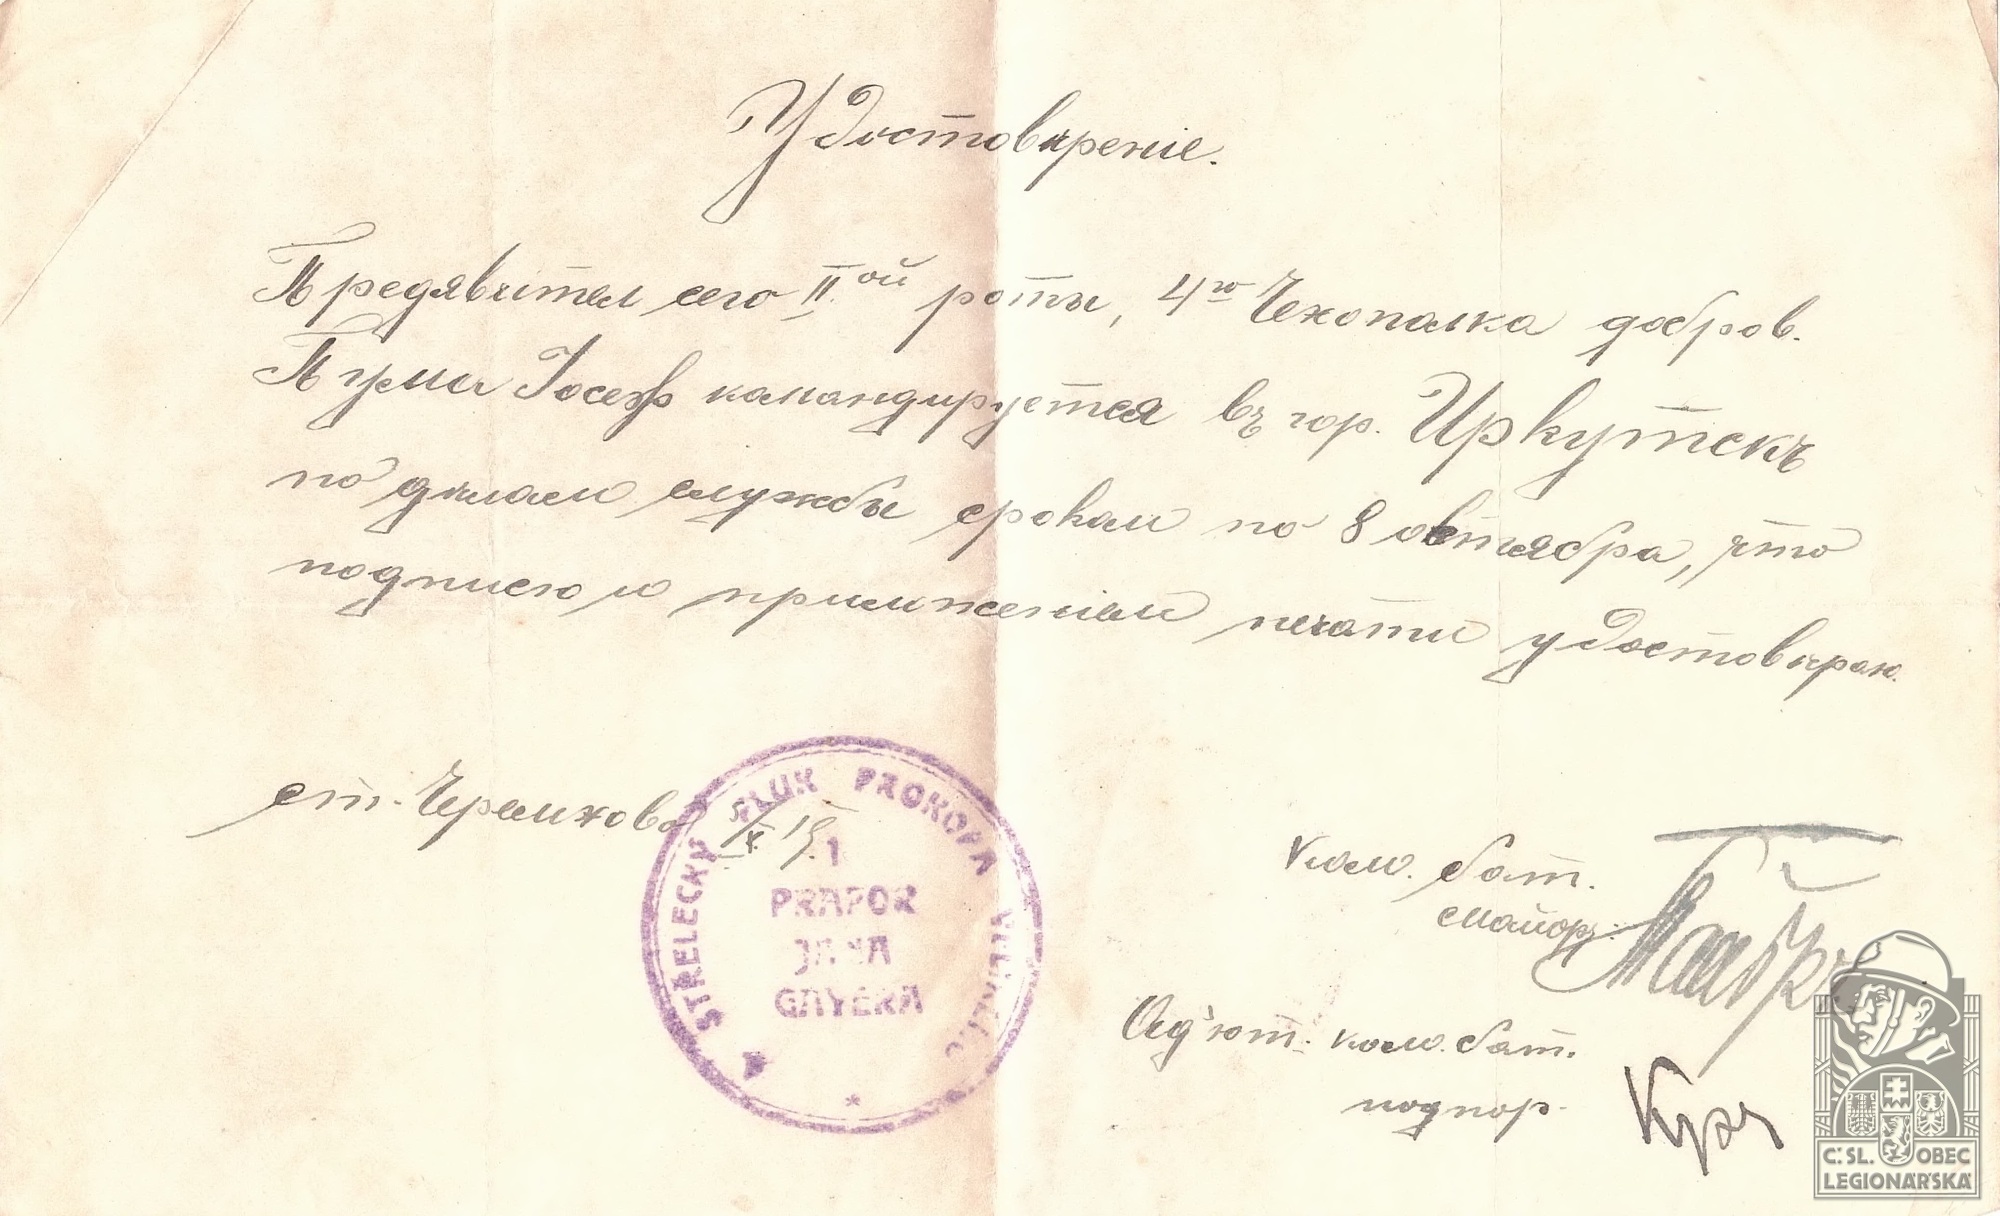 Удостовѣреніе.
Предявител сего II.ой роты, 4го Чехополка добров.
Тума Іосеф командируется въ гор. Иркутскъ
по дѣлам службы сроком по 8 октября, что
подписю и приложеніем печати удостовѣраю.
ст. Черемхово 5/X. 19.
4 STŘELECKÝ PLUK PROKOPA VELIKÉHO
1
PRAPOR
JANA
GAYERA
*
Ком. бат.
маиоръ:
Ад'ют. ком. бат.
подпор.
Č.SL. OBEC
LEGIONÁŘSKÁ